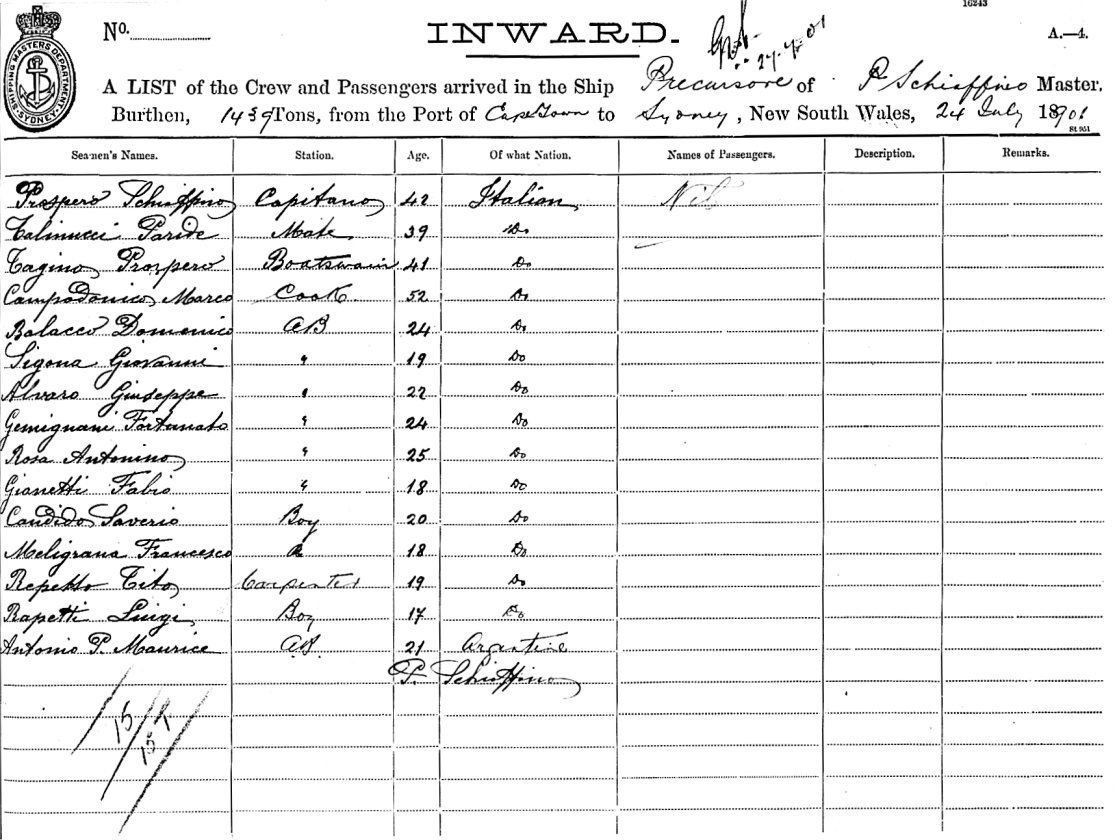 16243
No. INWARD. A.—4.
27.7.01
SHIPPING MASTERS DEPARTMENT SYDNEY
A LIST of the Crew and Passengers arrived in the Ship Precursore of P Schiaffino Master,
Burthen, 1439 Tons, from the Port of CapeTown to Sydney, New South Wales, 24 July 18901
St 951
Seamen's Names. Station. Age. Of what Nation. Names of Passengers. Description. Remarks.
Prospero Schiaffino Capitano 42 Italian Nil
Talinucci Paride Mate 39 Do
Tagino Prospero Boatswain 41 Do
Campodonico Marco Cook 52 Do
Balacco Domenico AB 24 Do
Sigona Giovanni " 19 Do
Alvaro Giuseppe " 22 Do
Gemignani Fortunato " 24 Do
Rosa Antonino " 25 Do
Gianetti Fabio " 18 Do
Candido Saverio Boy 20 Do
Meligrana Francesco 18 Do
Repetto Tito Carpenter 19 Do
Rapetti Luigi Boy 17 Do
Antonio P. Maurice AB. 21 Argentine
P. Schiaffino
15